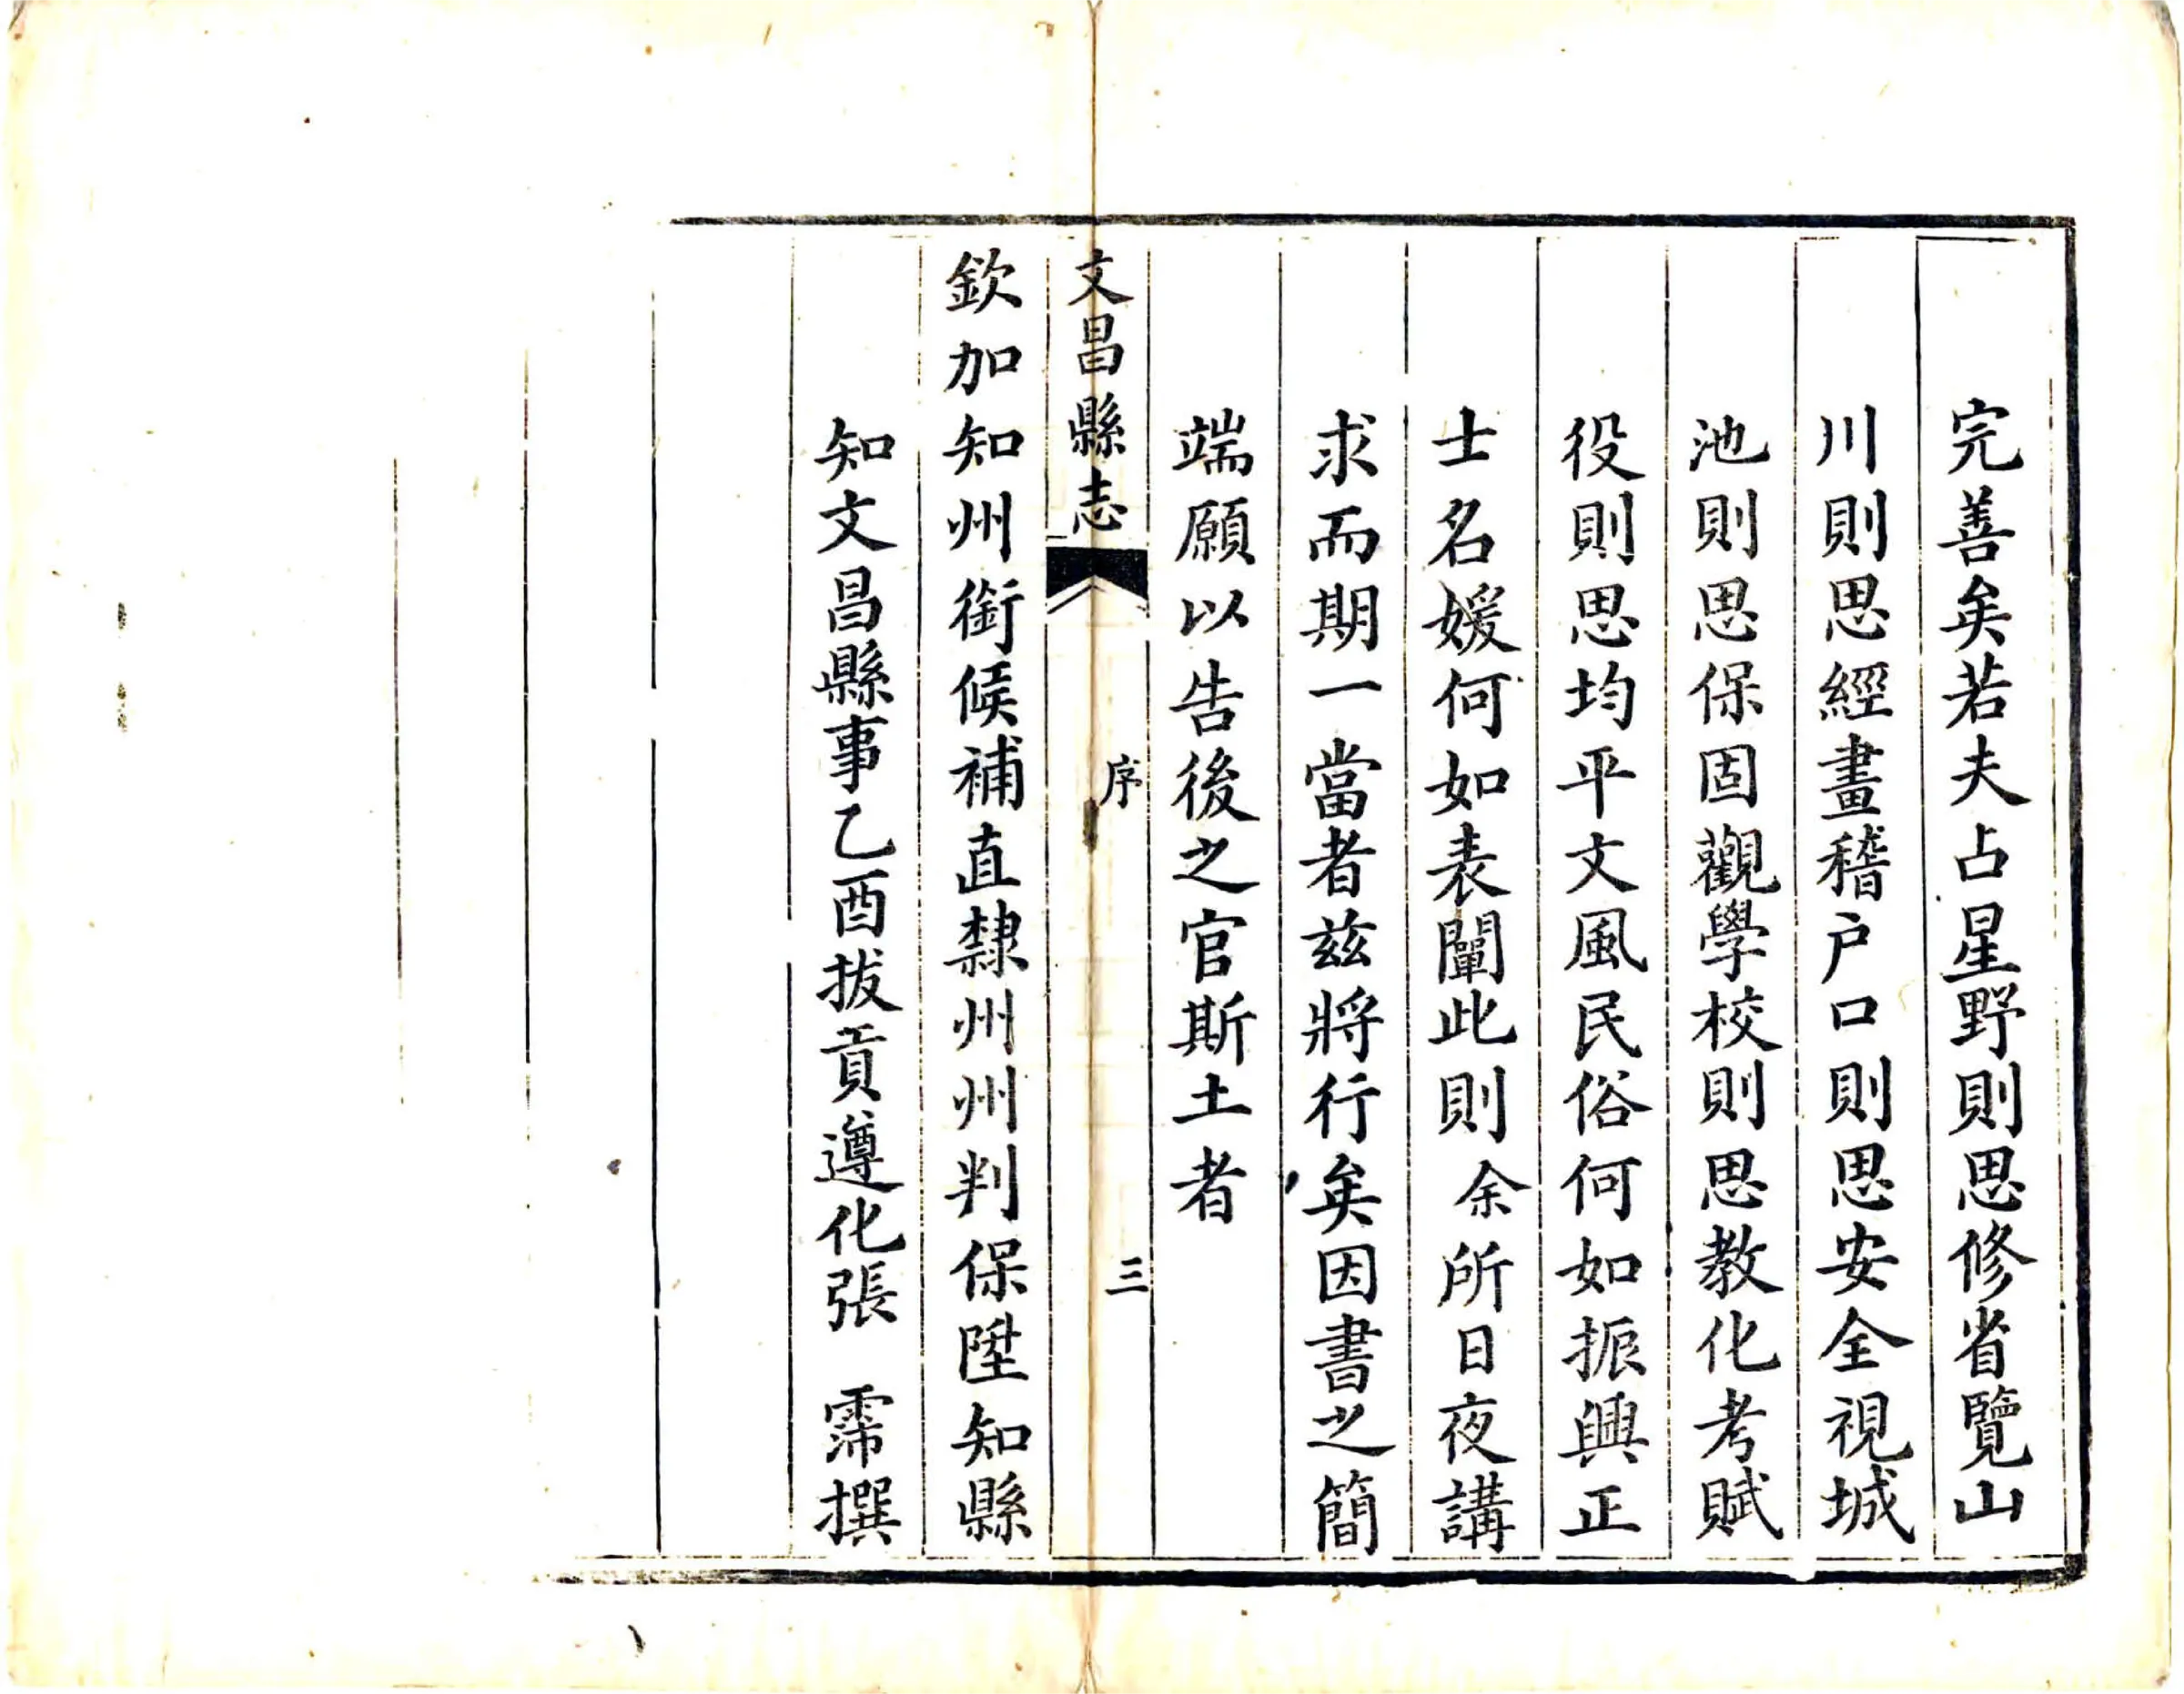 完善矣若夫占星野則思修省覽山
川則思經畫稽户口則思安全視城
池則思保固觀學校則思教化考賦
役則思均平文風民俗何如振興正
士名媛何如表闡此則余所日夜講
求而期一當者茲將行矣因書之簡
端願以告後之官斯土者
文昌縣志 序 三
欽加知州銜候補直隸州州判保陞知縣
知文昌縣事乙酉拔貢遵化張 霈撰